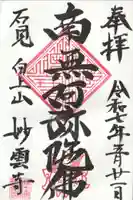 奉拝
令和七年五月廿一日
南無阿弥陀佛
石見 白上山 妙雲寺